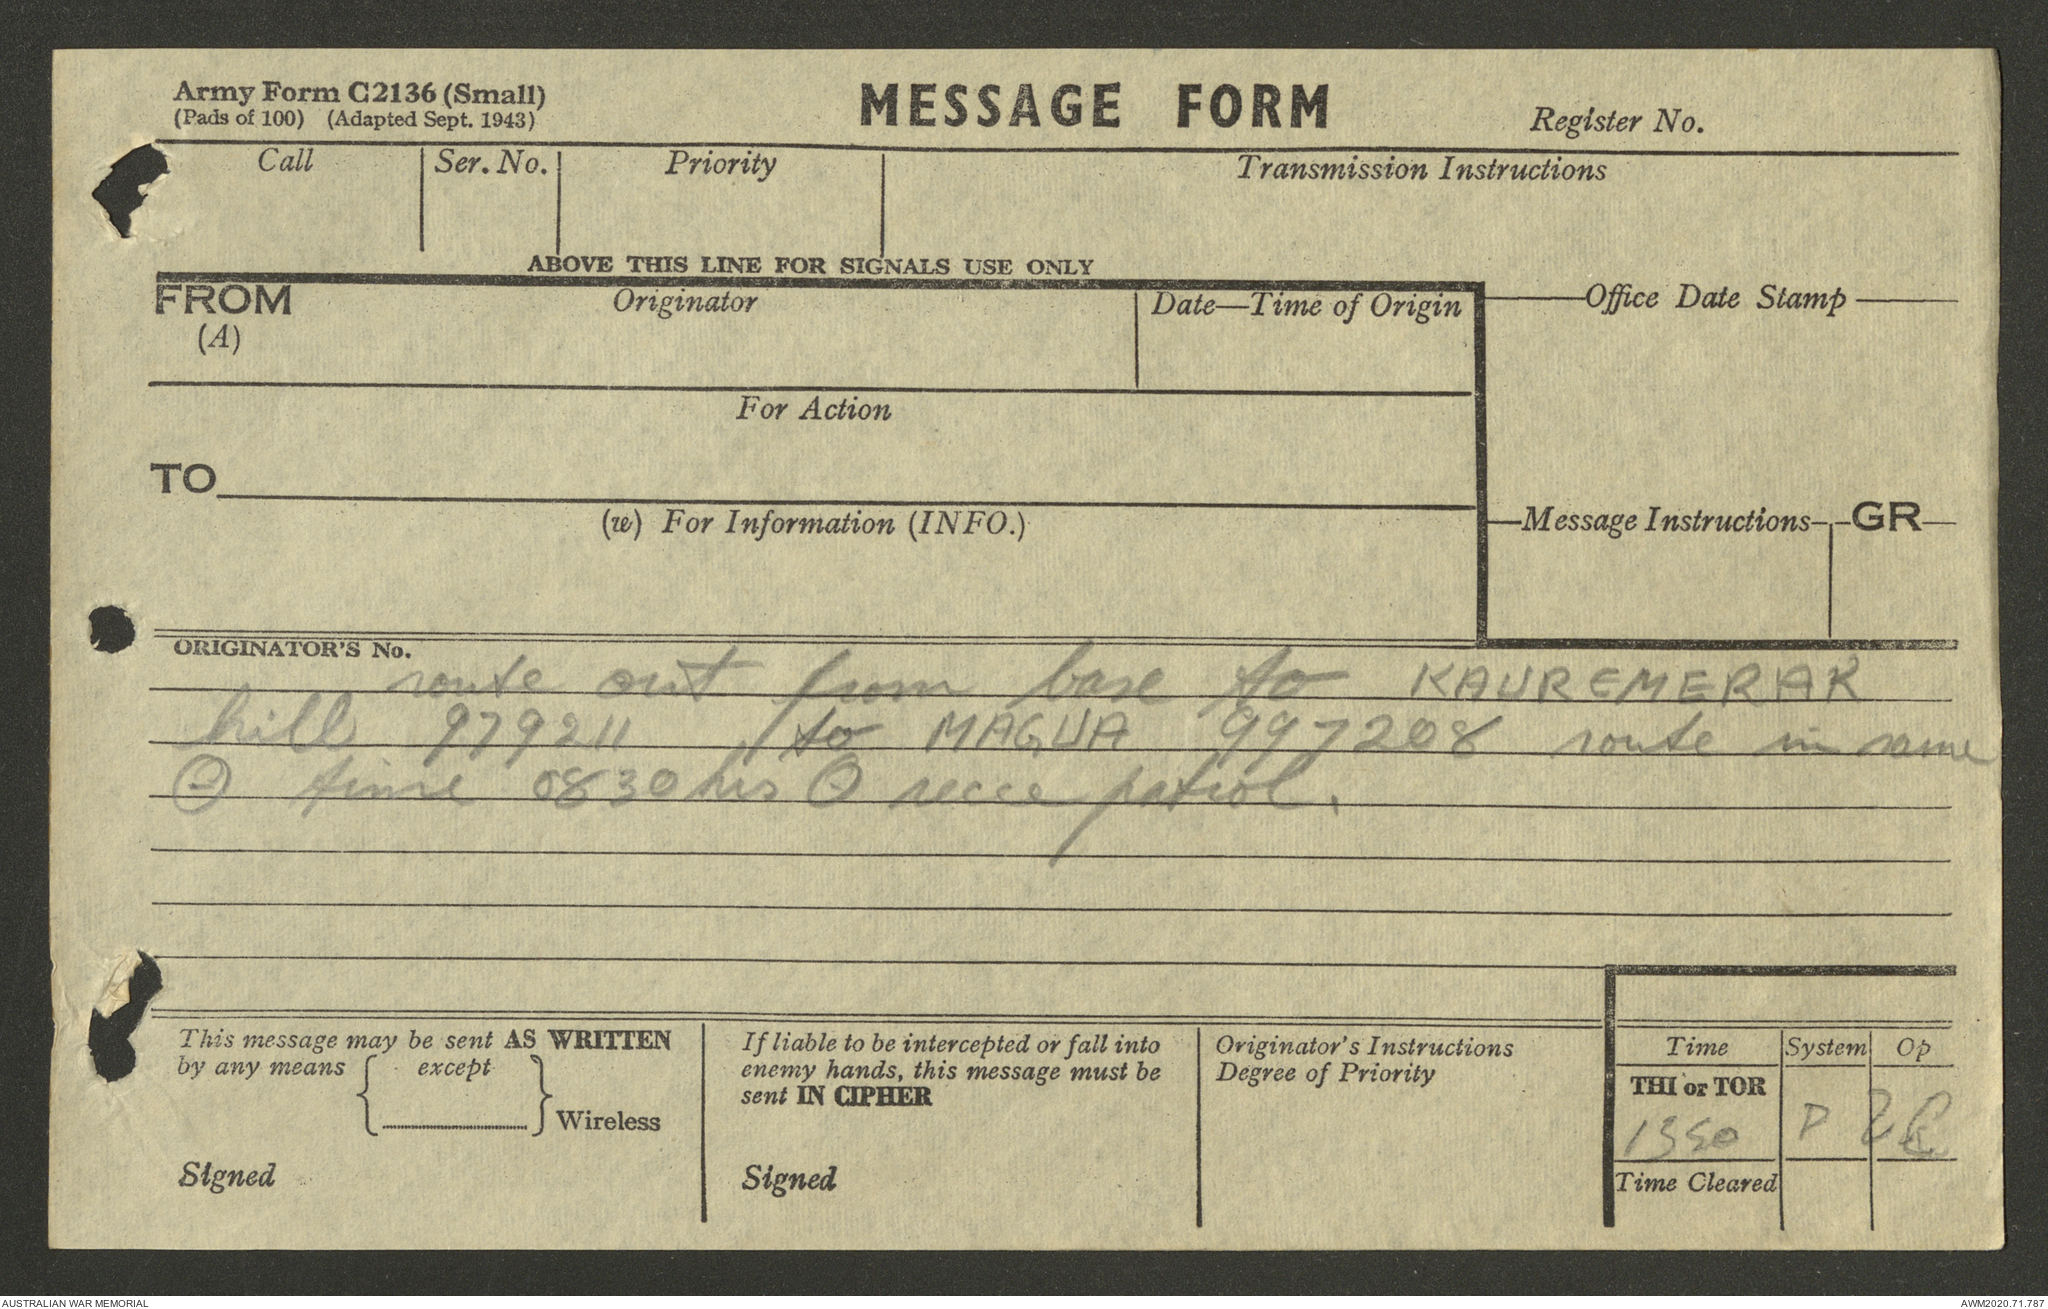 Army Form C2136 (Small)
(Pads of 100) (Adapted Sept. 1943)
MESSAGE FORM
Register No.
Call Ser. No. Priority Transmission Instructions
ABOVE THIS LINE FOR SIGNALS USE ONLY
FROM Originator Date—Time of Origin Office Date Stamp
(A)
For Action
TO
(w) For Information (INFO.) Message Instructions GR
ORIGINATOR'S No.
route out from base to KAUREMERAK
hill 979211 to MAGUA 997208 route in same
⊖ time 0830 hrs ⊖ recce patrol.
This message may be sent AS WRITTEN
by any means except
Wireless
Signed
If liable to be intercepted or fall into
enemy hands, this message must be
sent IN CIPHER
Signed
Originator's Instructions
Degree of Priority
Time System Op
THI or TOR
1350 P
Time Cleared
AUSTRALIAN WAR MEMORIAL
AWM2020.71.787